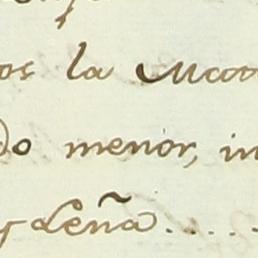 os la
do menor, in
y Leña....